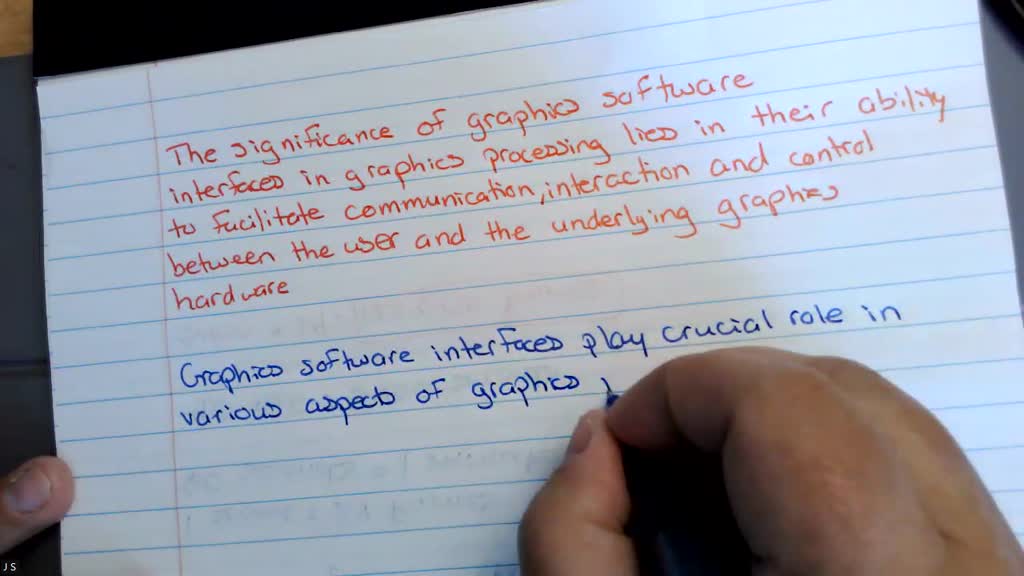 The significance of graphics software
interfaces in graphics processing lies in their ability
to facilitate communication, interaction and control
between the user and the underlying graphics
hardware
Graphics software interfaces play crucial role in
various aspects of graphics
J S